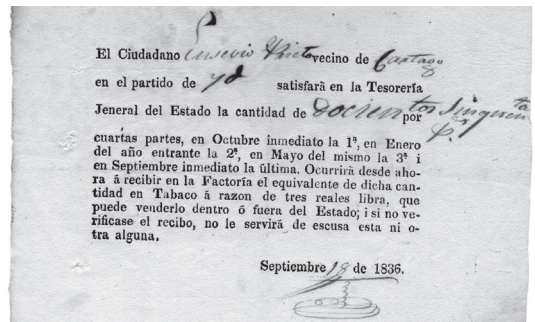 El Ciudadano Eusevio Prieto vecino de Cartago
en el partido de yd satisfará en la Tesorería
Jeneral del Estado la cantidad de Docientos sinquenta p.s por
cuartas partes, en Octubre inmediato la 1ª, en Enero
del año entrante la 2ª, en Mayo del mismo la 3ª i
en Septiembre inmediato la última. Ocurrirá desde aho-
ra á recibir en la Factoría el equivalente de dicha can-
tidad en Tabaco á razon de tres reales libra, que
puede venderlo dentro ó fuera del Estado; i si no ve-
rificase el recibo, no le servirá de escusa esta ni o-
tra alguna.
Septiembre 18 de 1836.